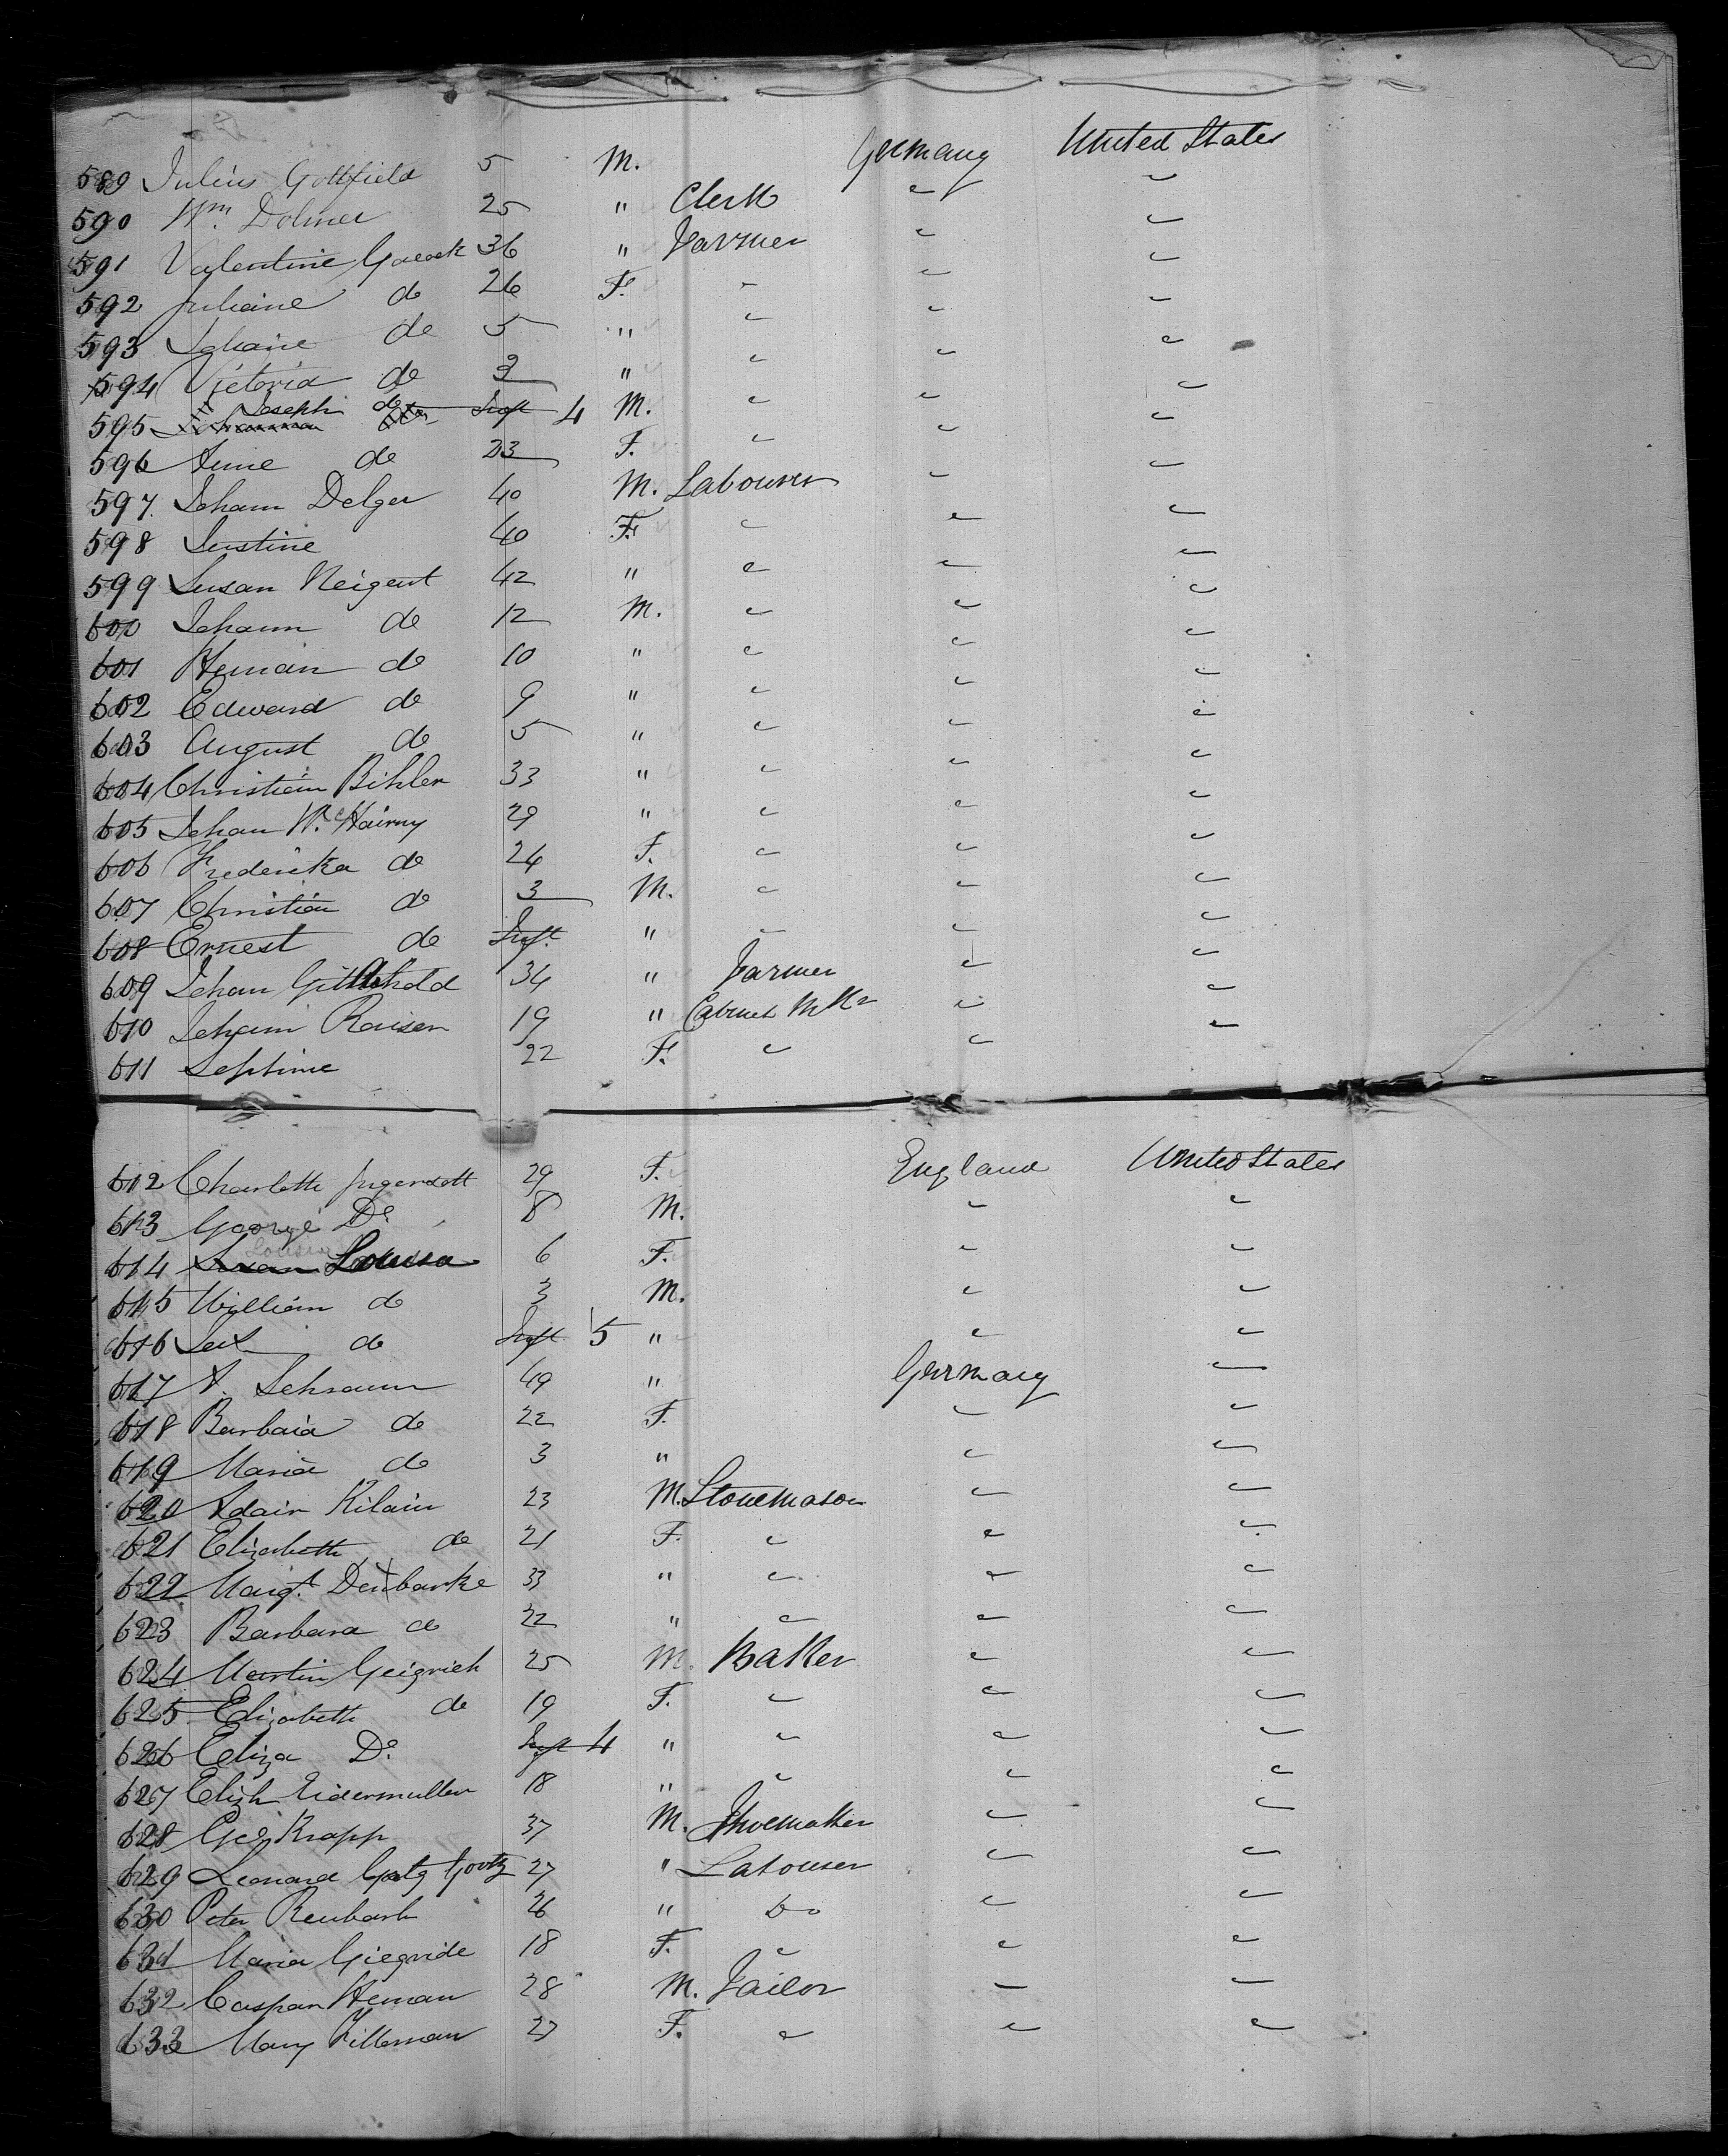 589 Julius Gottfield 5 M. Germany United States
590 Wm. Dolmer 25 " Clerk " "
591 Valentine 36 " Farmer " "
592 Juliane do 26 F. " " "
593 do 5 " " " "
594 Victoria do 3 " " " "
595 Joseph do Inft 4 M. " " "
596 Anne do 23 F. " " "
597. Johann Delger 40 M. Labourer " "
598 Justine 40 F. " " "
599 Susan Neigent 42 " " " "
600 Johann do 12 M. " " "
601 Heman do 10 " " " "
602 Edward do 9 " " " "
603 August do 5 " " " "
604 Christian Bihler 33 " " " "
605 Johan 29 " " " "
606 Frederika do 24 F. " " "
607 Christian do 3 M. " " "
608 Ernest do Inft. " " " "
609 Johan 34 " Farmer " "
610 Johann Raisen 19 " Cabinet MKr " "
611 Septime 22 F. " " "
612 Charlotte Ingersott 29 F. England United States
613 George Do. 8 M. " "
614 Louisa 6 F. " "
615 William do 3 M. " "
616 do Inft 5 " " "
617 A. Schramm 49 " Germany "
618 Barbara do 22 F. " "
619 Maria do 3 " " "
620 Adam Kilain 23 M. Stonemason " "
621 Elizabeth do 21 F. " " "
622 Margt. 33 " " " "
623 Barbara do 22 " " " "
624 Martin Geigrich 25 M. Baker " "
625 Elizabeth do 19 F. " " "
626 Eliza Do. Inft 4 " " " "
627 Elizh Eidermuller 18 " " " "
628 Geo Krapp 37 M. Shoemaker " "
629 Leonard Goetz 27 " Labourer " "
630 Peter Reubash 26 " Do " "
631 Maria Giegride 18 F. " " "
632 Caspar Heman 28 M. Tailor " "
633 Mary Killerman 23 F. " " "